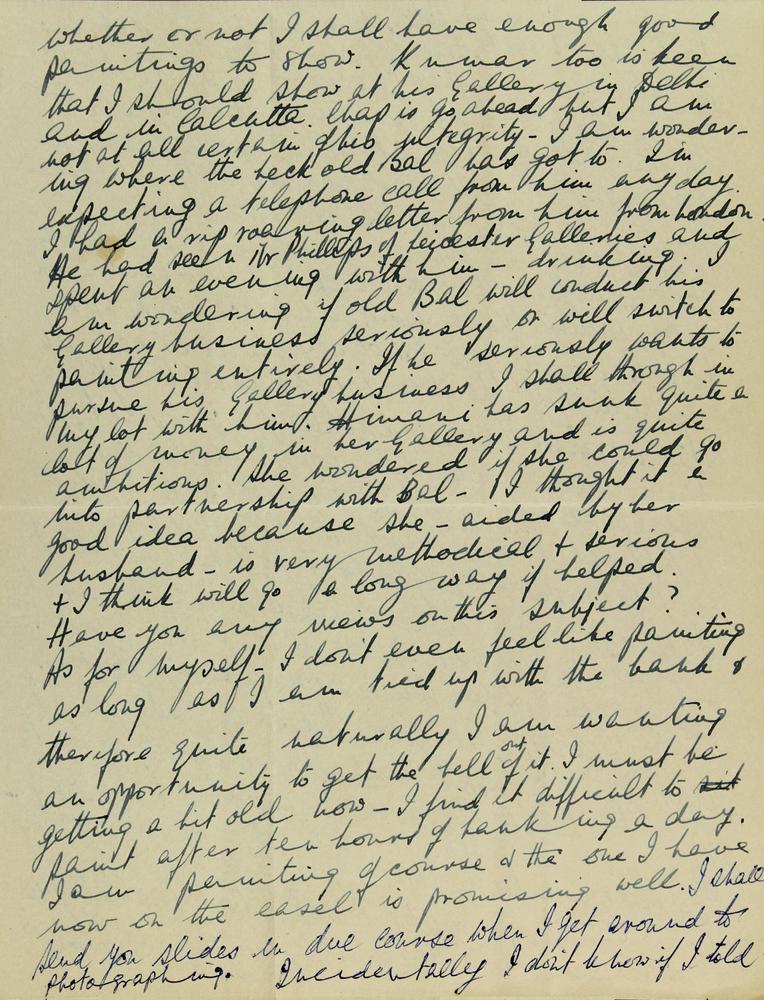 whether or not I shall have enough good
paintings to show. Kumar too is keen
that I should show at his Gallery in Delhi
and in Calcutta. Chap is go ahead but I am
not at all certain of his integrity - I am wonder-
ing where the heck old Bal has got to. I'm
expecting a telephone call from him any day.
I had a rip roaring letter from him from London.
He had seen Mr Phillips of Leicester Galleries and
spent an evening with him - drinking. I
am wondering if old Bal will conduct his
Gallery business seriously or will switch to
painting entirely. If he seriously wants to
pursue his Gallery business I shall through in
my lot with him. Himani has sunk quite a
lot of money in her Gallery and is quite
ambitious. She wondered if she could go
into partnership with Bal - I thought it a
good idea because she - aided by her
husband - is very methodical + serious
+ I think will go a long way if helped.
Have you any views on this subject?
As for myself - I don't even feel like painting
as long as I am tied up with the bank &
therefore quite naturally I am wanting
an opportunity to get the hell out of it. I must be
getting a bit old now - I find it difficult to sit
paint after ten hours of banking a day.
I am painting of course & the one I have
now on the easel is promising well. I shall
send you slides in due course when I get around to
photographing. Incidentally I don't know if I told